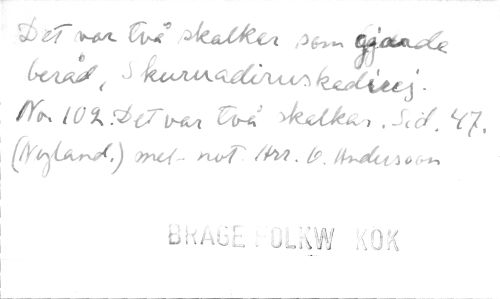 Det var två skalkar som gjorde
beråd, Skurnadiruskadirej.
No 102. Det var två skalkar. Sid. 47.
(Nyland.) mel. not. Arr. O. Andersson
BRAGE FOLKW KOK